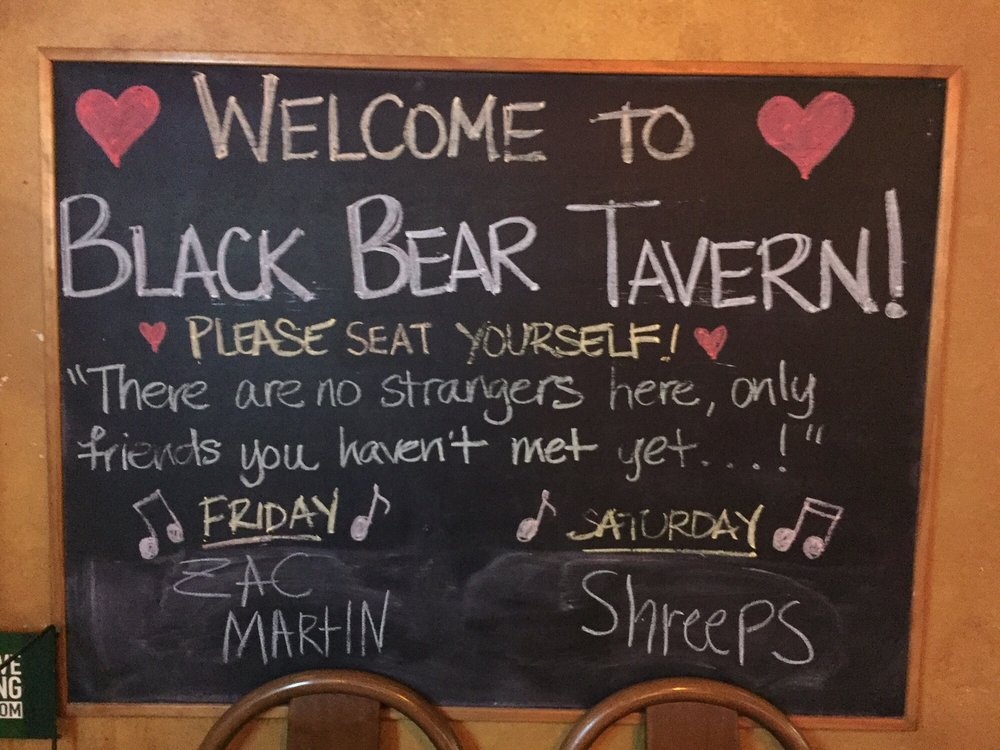 WELCOME TO
BLACK BEAR TAVERN!
PLEASE SEAT YOURSELF!
"There are no strangers here, only
friends you haven't met yet....!"
FRIDAY SATURDAY
ZAC
MARTIN
Shreeps